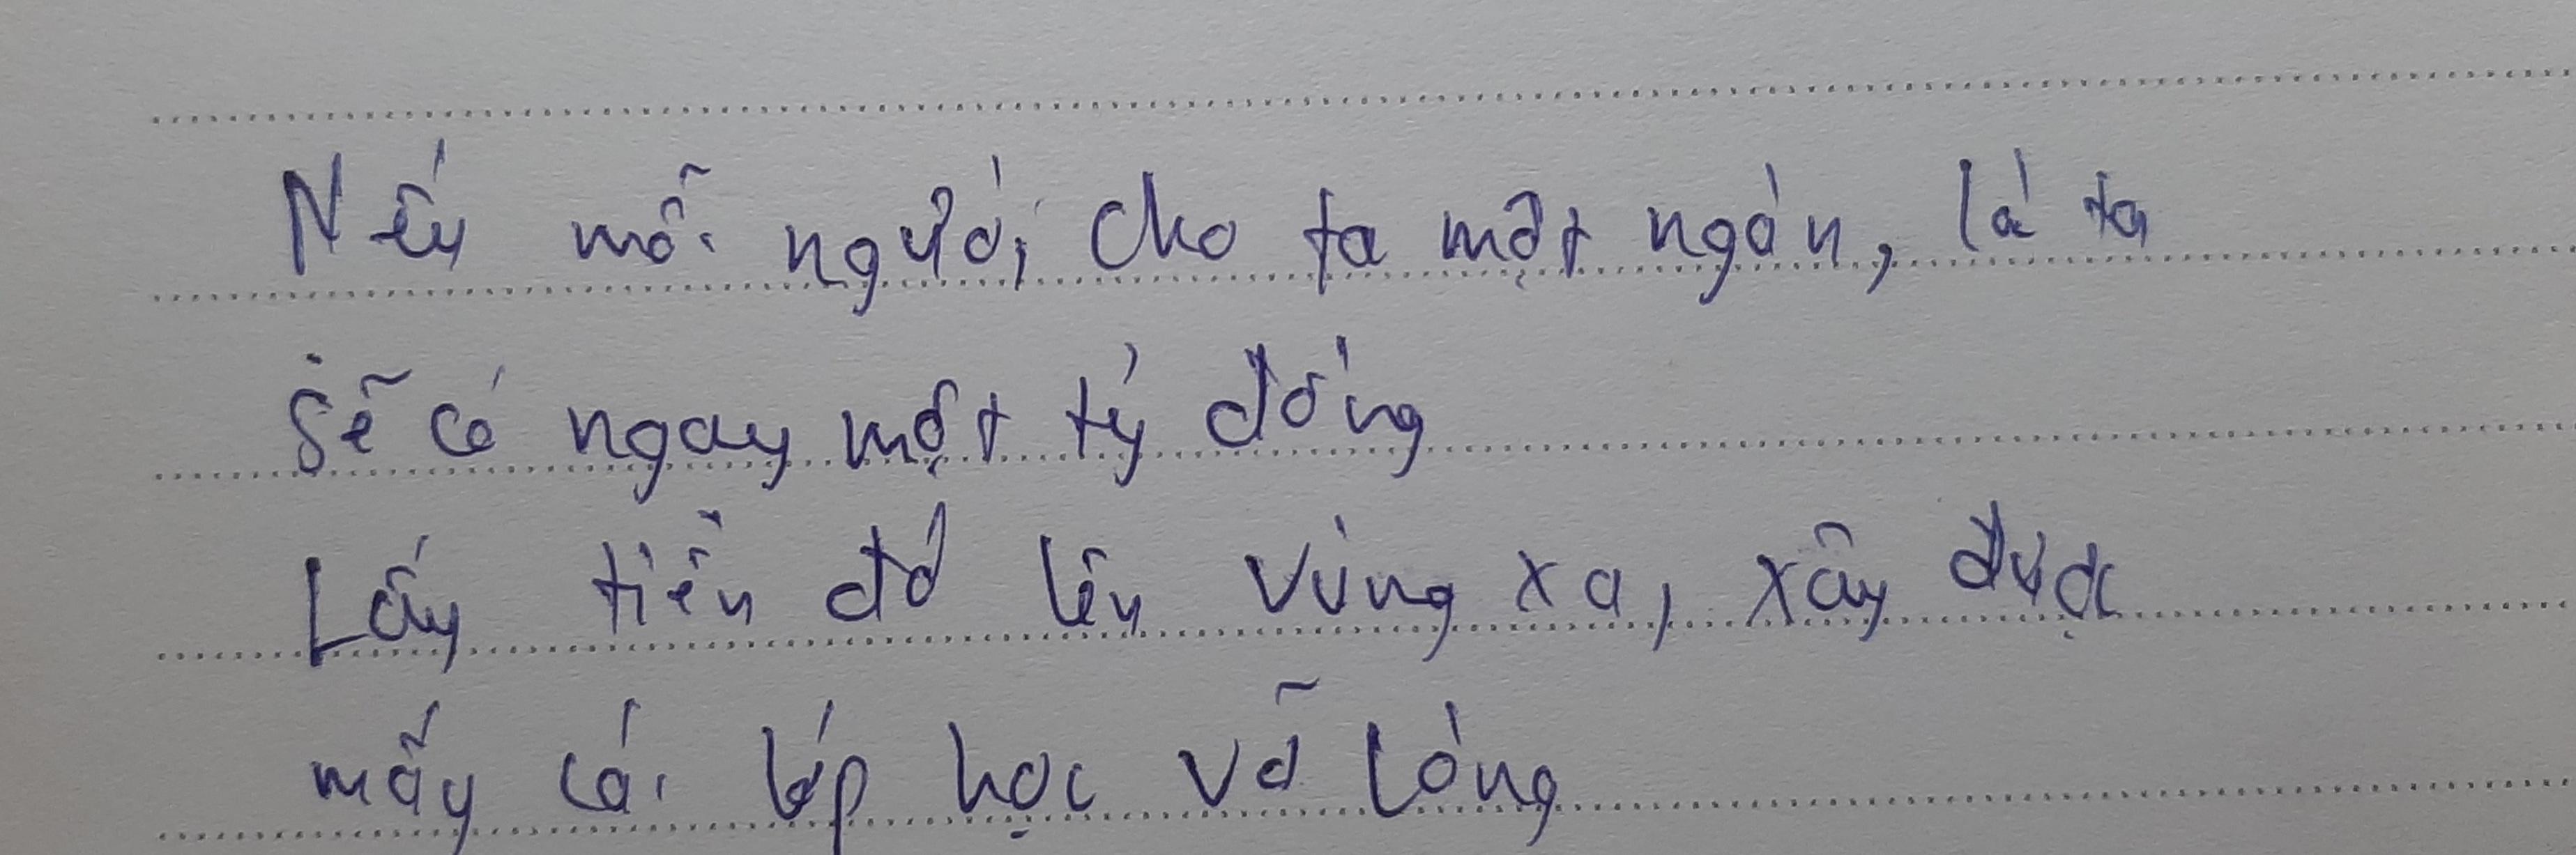 Nếu mỗi người cho ta một ngàn, là ta
sẽ có ngay một tỷ đồng
Lấy tiền đó lên vùng xa, xây được
mấy cái lớp học vỡ lòng